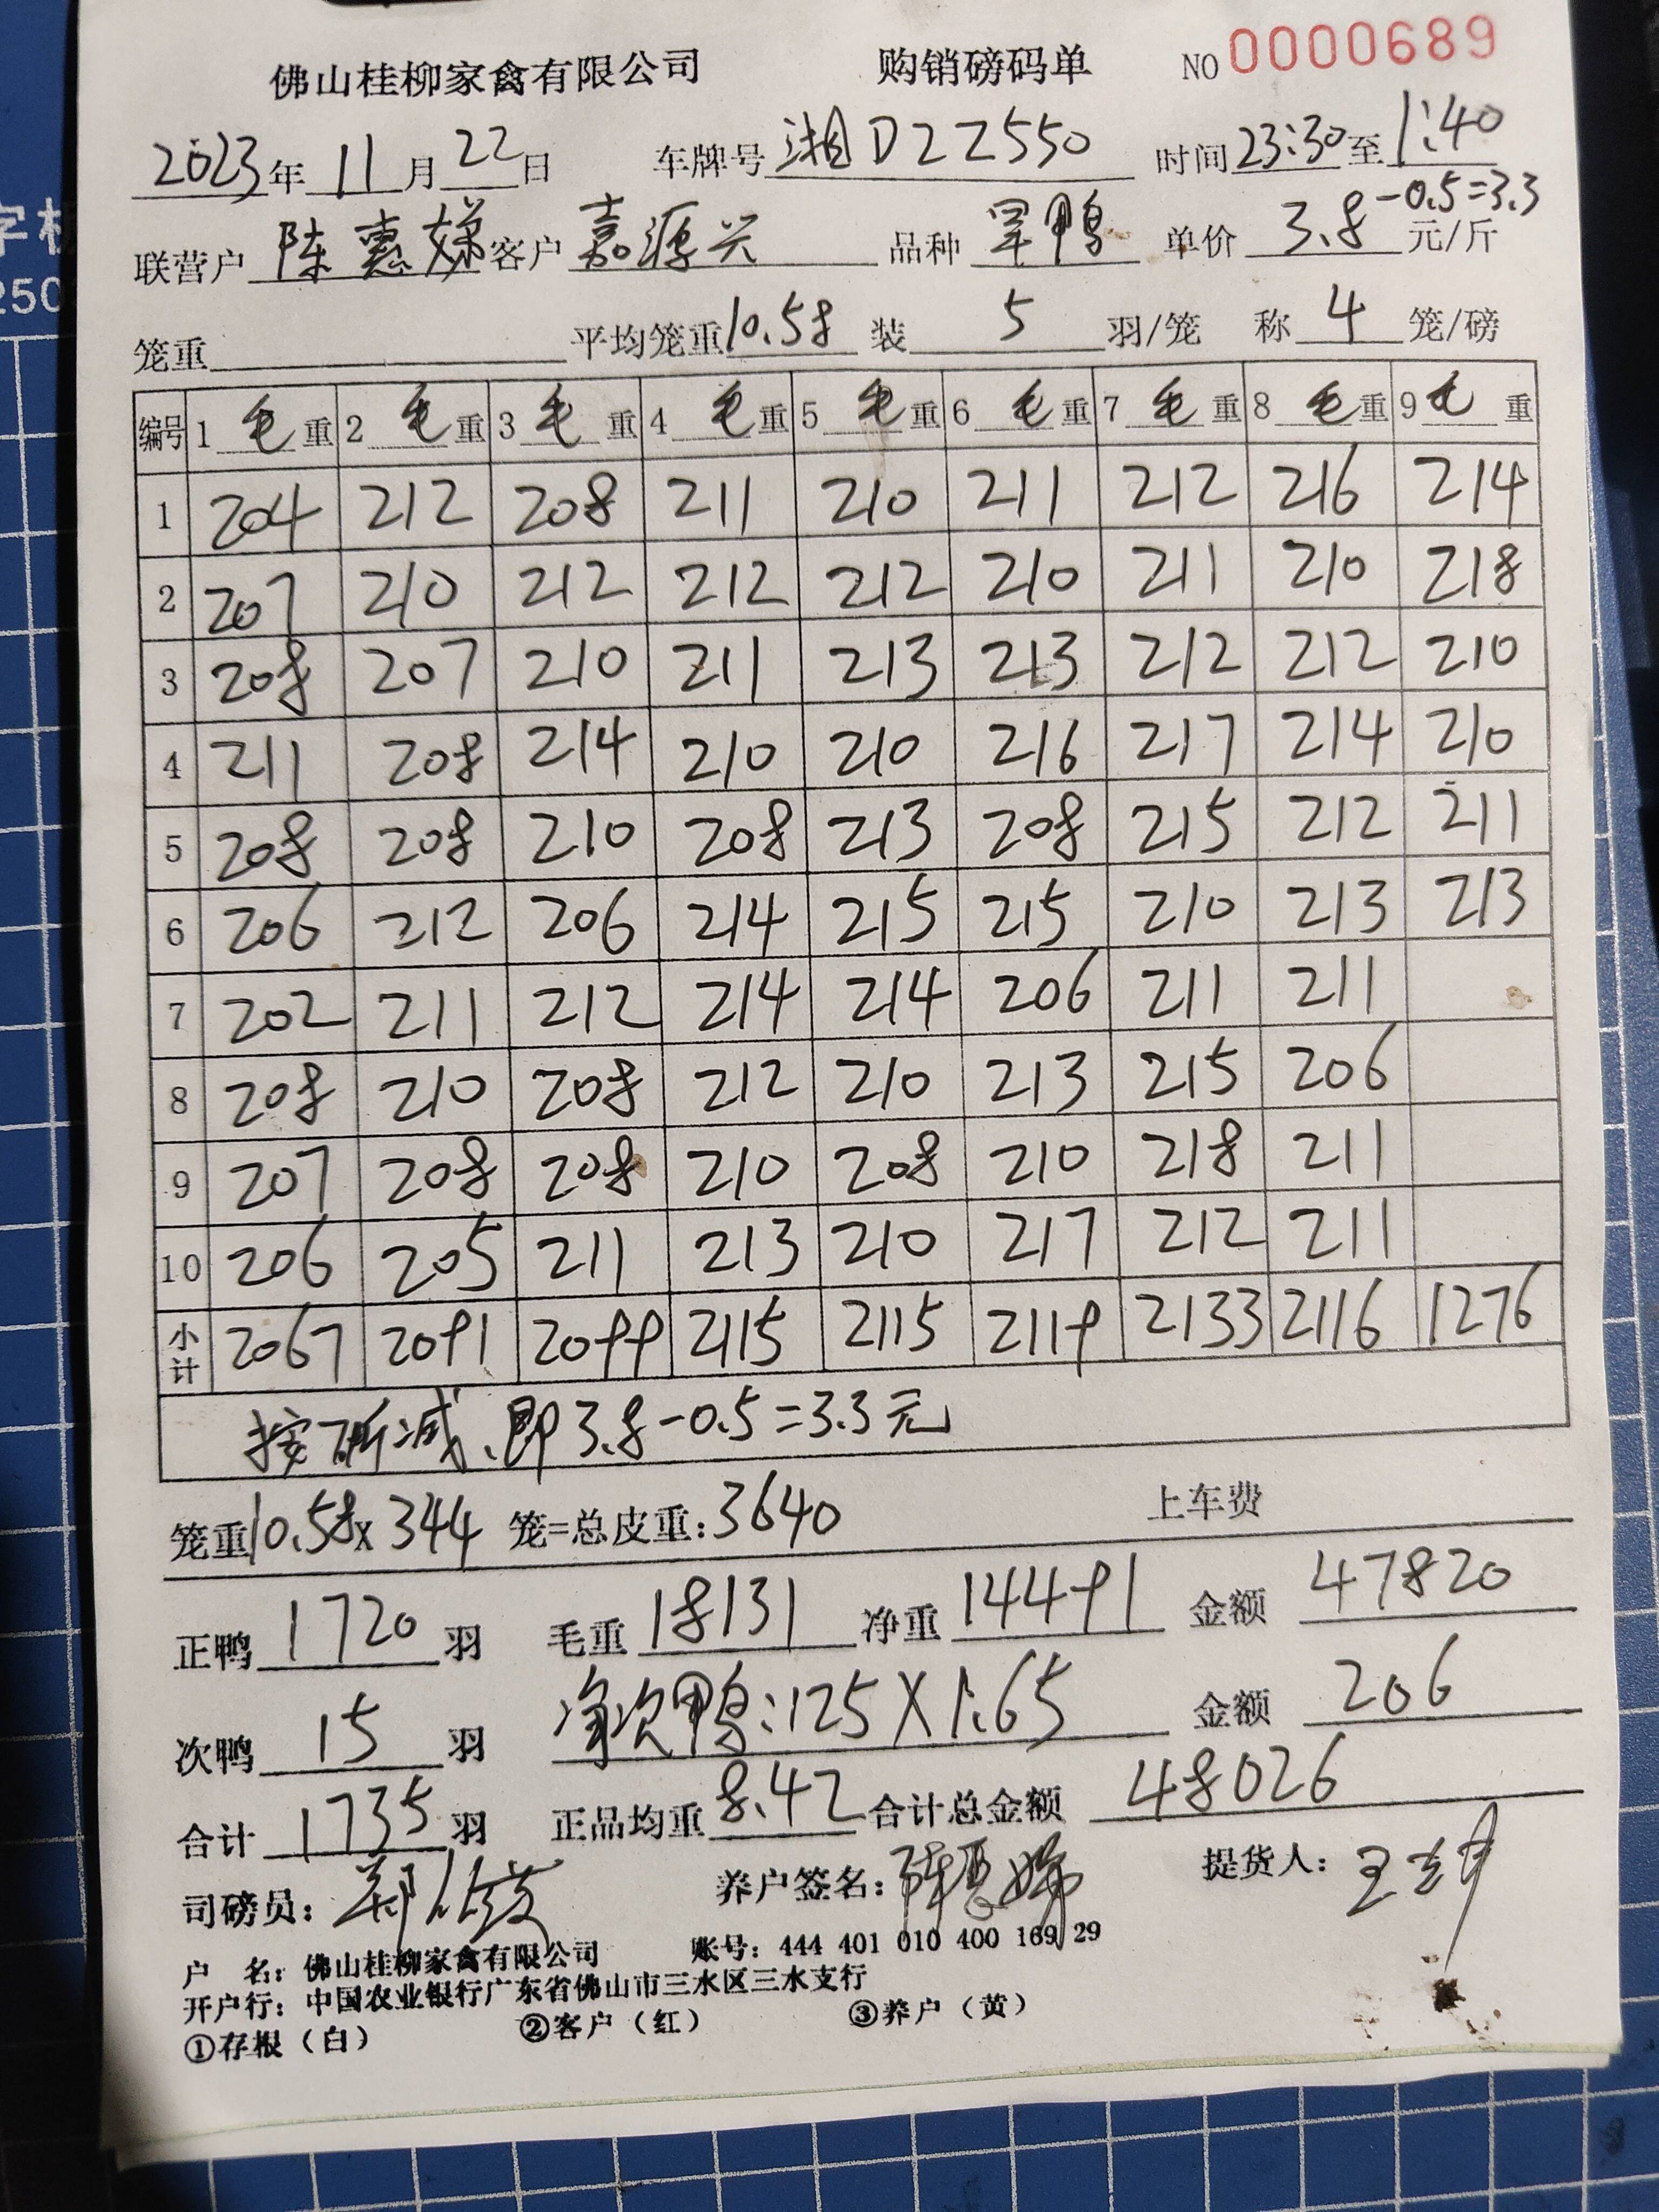 佛山桂柳家禽有限公司 购销磅码单 NO 0000689
2023年11月22日 车牌号 湘D2Z550 时间 23:30 至 1:40
联营户 陈惠娣 客户 嘉源兴 品种 罕鸭 单价 3.8-0.5=3.3 元/斤
笼重 平均笼重 10.58 装 5 羽/笼 称 4 笼/磅
编号 1 毛重 2 毛重 3 毛重 4 毛重 5 毛重 6 毛重 7 毛重 8 毛重 9 毛重
1 204 212 208 211 210 211 212 216 214
2 207 210 212 212 212 210 211 210 218
3 208 207 210 211 213 213 212 212 210
4 211 208 214 210 210 216 217 214 210
5 208 208 210 208 213 208 215 212 211
6 206 212 206 214 215 215 210 213 213
7 202 211 212 214 214 206 211 211
8 208 210 208 212 210 213 215 206
9 207 208 208 210 208 210 218 211
10 206 205 211 213 210 217 212 211
小计 2067 2091 2099 2115 2115 2119 2133 2116 1276
按斫减、即3.8-0.5=3.3元
笼重 10.58x 344 笼=总皮重: 3640 上车费
正鸭 1720 羽 毛重 18131 净重 14491 金额 47820
次鸭 15 羽 净次鸭:125X1.65 金额 206
合计 1735 羽 正品均重 8.42 合计总金额 48026
司磅员: 养户签名: 陈惠娣 提货人:
户 名: 佛山桂柳家禽有限公司 账号: 444 401 010 400 169 29
开户行: 中国农业银行广东省佛山市三水区三水支行
①存根(白) ②客户(红) ③养户(黄)